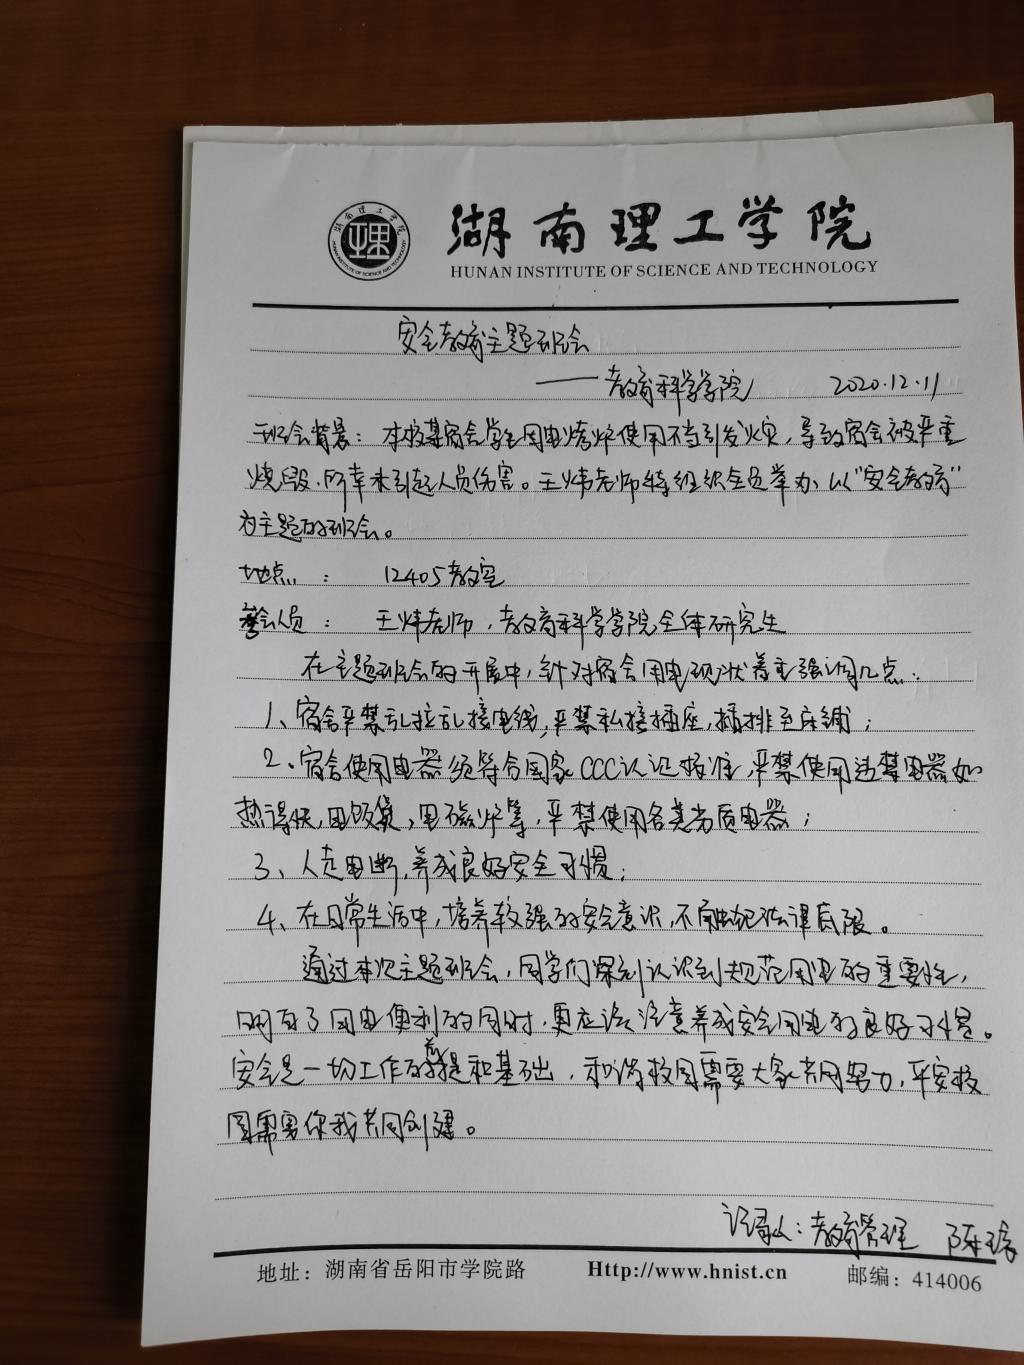 湖南理工学院
HUNAN INSTITUTE OF SCIENCE AND TECHNOLOGY
安全教育主题班会
——教育科学学院 2020.12.11
班会背景：本校某宿舍学生因电烤炉使用不当引发火灾，导致宿舍被严重
烧毁，所幸未引起人员伤害。王炜老师特组织全员举办，以“安全教育”
为主题的班会。
地点： 12405教室
参会人员： 王炜老师，教育科学学院全体研究生
在主题班会的开展中，针对宿舍用电现状着重强调几点：
1、宿舍严禁乱拉乱接电线，严禁私接插座，插排至床铺；
2、宿舍使用电器须符合国家CCC认证校准，严禁使用违禁电器如
热得快，电饭煲，电磁炉等，严禁使用各类劣质电器；
3、人走电断，养成良好安全习惯；
4、在日常生活中，培养较强的安全意识，不触犯法律底限。
通过本次主题班会，同学们深刻认识到规范用电的重要性，
明白了用电便利的同时，更应该注意养成安全用电的良好习惯。
安全是一切工作的前提和基础，和谐校园需要大家共同努力，平安校
园需要你我共同创建。
记录人：教育管理 陈
地址：湖南省岳阳市学院路 Http://www.hnist.cn 邮编：414006